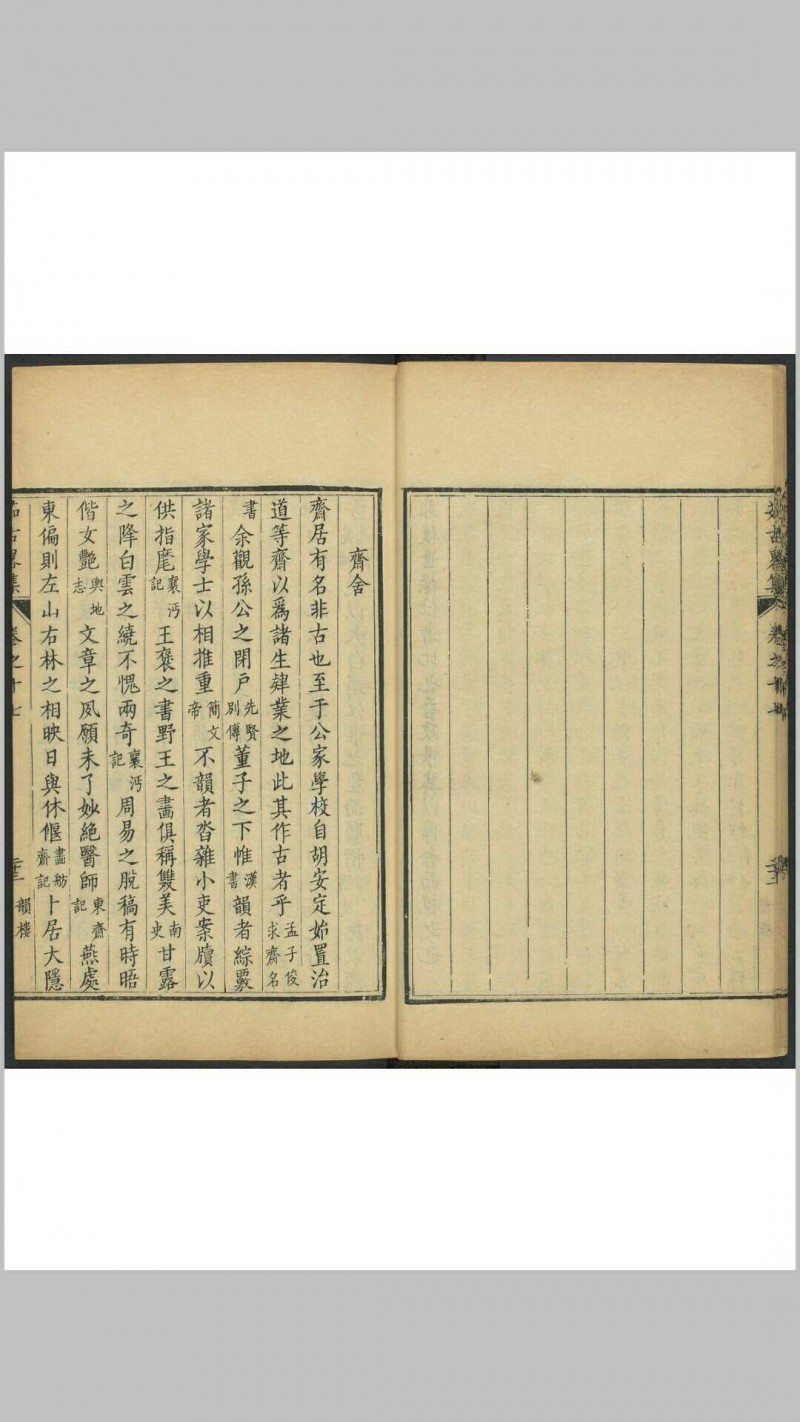 茹古畧集
卷之十七
二十二
齋舍
齋居有名非古也至于公家學校自胡安定始置治
道等齋以爲諸生肄業之地此其作古者乎孟子俊求齋名
書余觀孫公之閉戶先賢別傳董子之下帷漢書韻者綜覈
諸家學士以相推重簡文帝不韻者沓雜小吏案牘以
供指麾襄沔記王褒之書野王之畵俱稱雙美南史甘露
之降白雲之繞不愧兩奇襄沔記周易之脫稿有時晤
偕女艷輿地志文章之夙願未了妙絕醫師東齋記燕處
東偏則左山右林之相映日與休偃畵舫齋記卜居大隱
茹古畧集
卷之十七
二十三
韻樓